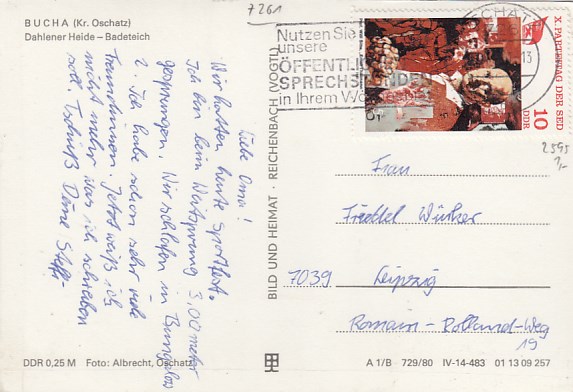 7261
BUCHA (Kr. Oschatz)
Dahlener Heide – Badeteich
Liebe Oma!
Wir hatten heute Sportfest.
Ich bin beim Weitsprung 3,00 meter
gesprungen. Wir schlafen in Bungalos
2. Ich habe schon sehr viele
Freundinnen. Jetzt weiß ich
nicht mehr was ich schreiben
soll. Tschüß Deine Steffi
BILD UND HEIMAT · REICHENBACH (VOGTL)
Nutzen Sie
unsere
ÖFFENTLICHEN
SPRECHSTUNDEN
in Ihrem
OSCHATZ
13
X. PARTEITAG DER SED
10
DDR
2595
Frau
7039 Leipzig
Romain-Rolland-Weg
19
DDR 0,25 M Foto: Albrecht, Oschatz
A 1/B 729/80 IV-14-483 01 13 09 257